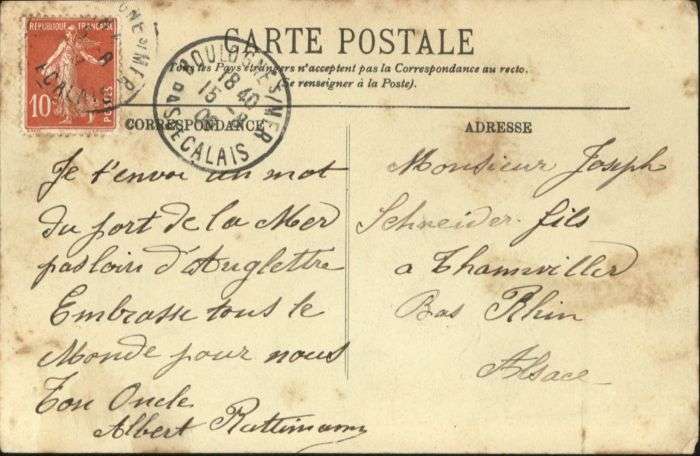 CARTE POSTALE
Tous les Pays étrangers n'acceptent pas la Correspondance au recto.
(Se renseigner à la Poste).
REPUBLIQUE FRANÇAISE
10
POSTES
BOULOGNE S/MER
18 40
15 -8
08
PAS DE CALAIS
CORRESPONDANCE
Je t'envoi un mot
du port de la Mer
pas loin d'Anglettre
Embrasse tous le
Monde pour nous
Ton Oncle
Albert Ruttimann
ADRESSE
Monsieur Joseph
Schneider fils
a Thannviller
Bas Rhin
Alsace